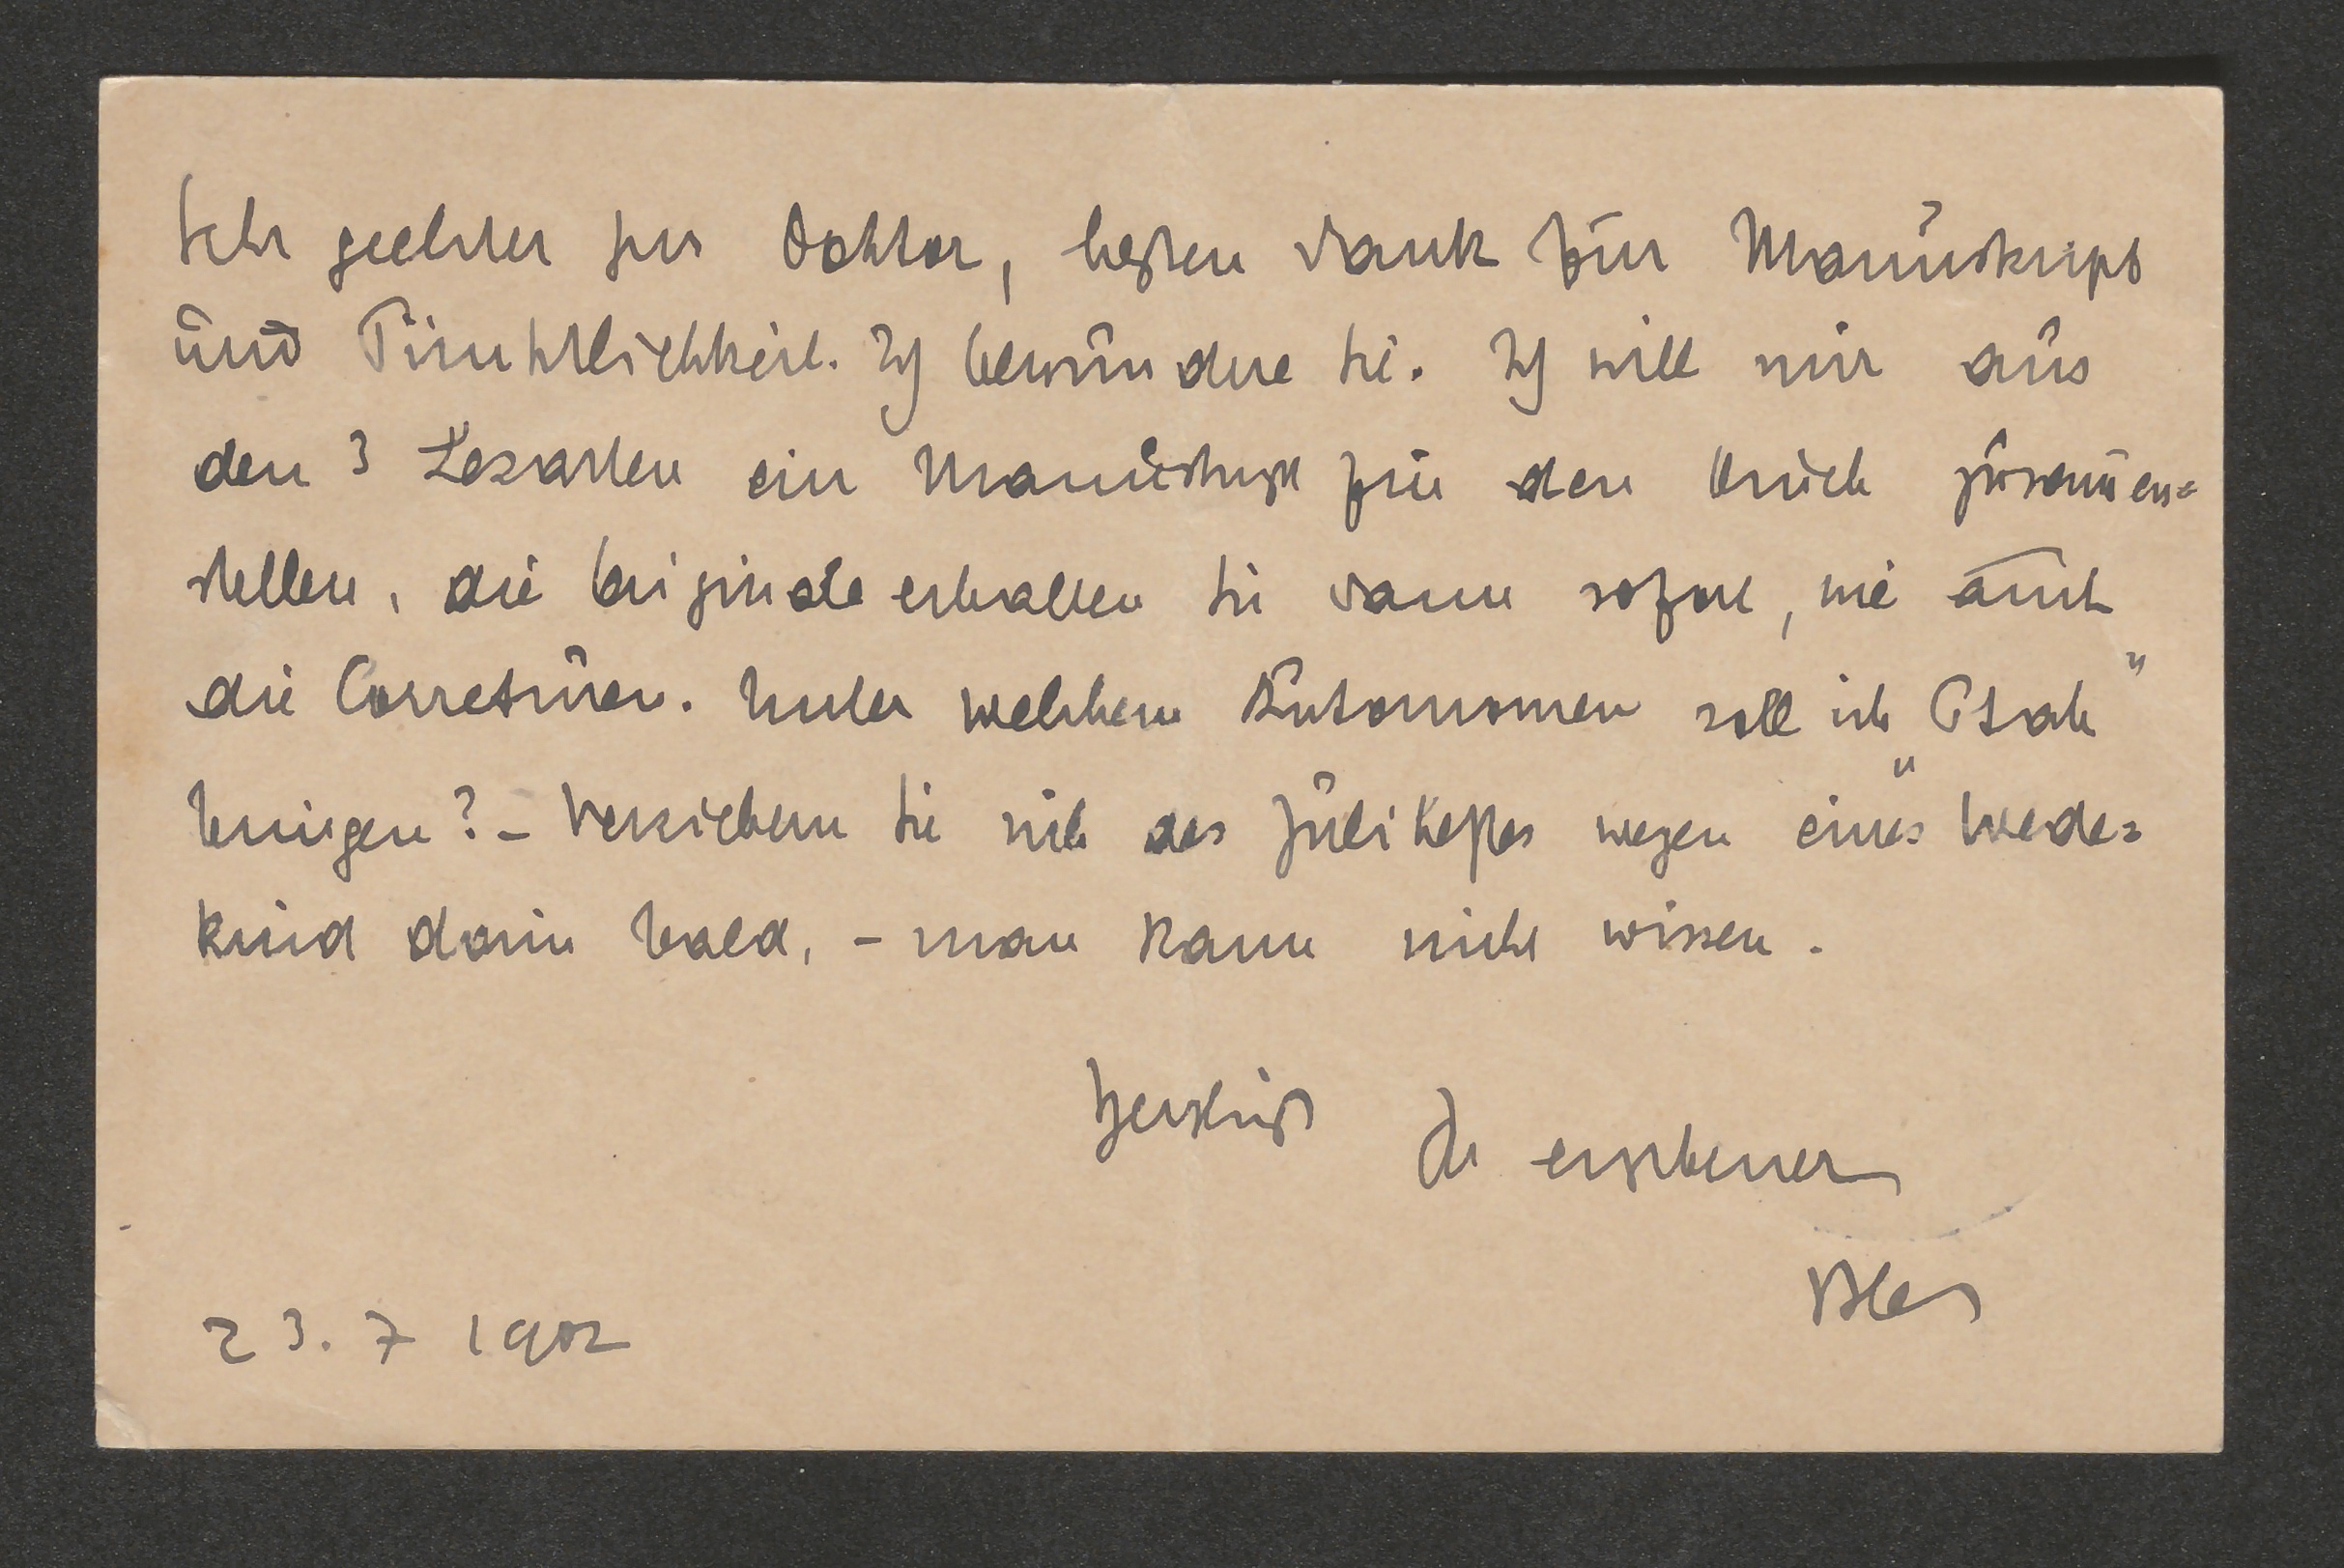 Sehr geehrter Herr Doktor, besten Dank für Manuskript
und Pünktlichkeit. Ich bewundere Sie. Ich will mir aus
den 3 Lesarten ein Manuskript für den Druck zusam̅en=
stellen, die Originale erhalten Sie dann sofort, wie auch
die Correcturen. Unter welchem Autornamen soll ich
bringen? – Versichern Sie mich des Juliheftes wegen eines Wede=
kind darin bald, – man kann nicht wissen.
Herzlichst Ihr ergebener
Blei
23. 7 1902